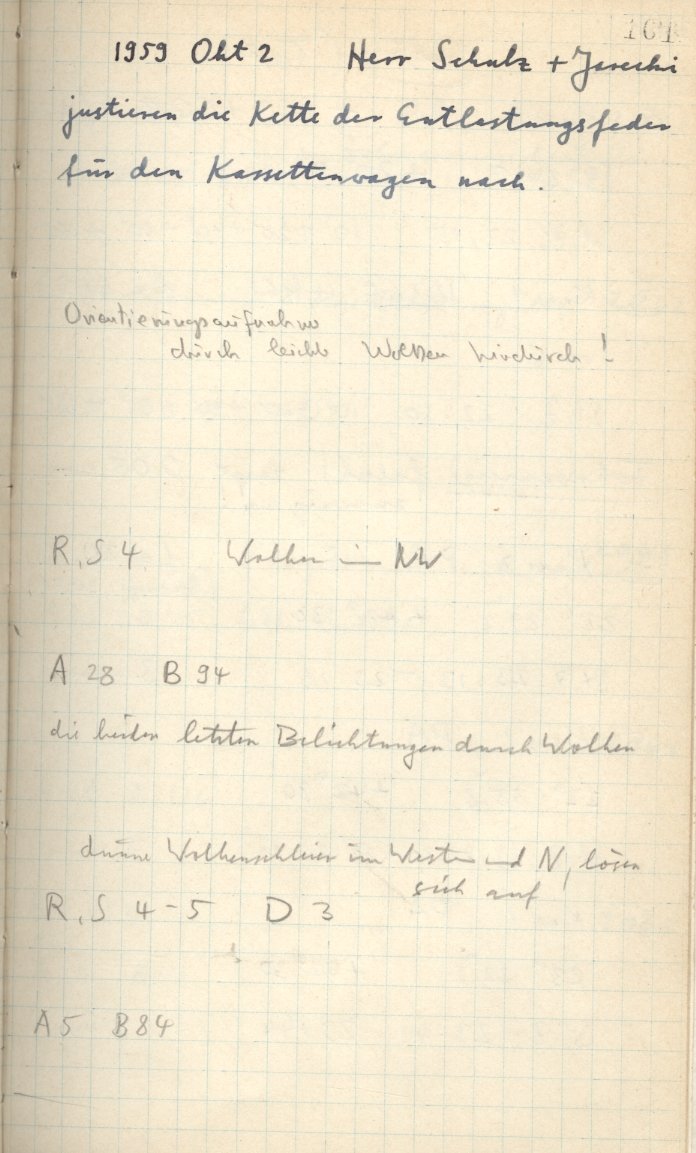 161
1959 Okt 2 Herr Schulz + Jarecki
justieren die Kette der Entlastungsfeder
für den Kassettenwagen nach.
Orientierungsaufnahme
durch leichte Wolken hindurch!
R, S 4 Wolken im NW
A 28 B 94
die beiden letzten Belichtungen durch Wolken
dünne Wolkenschleier im Westen und N, lösen
sich auf
R, S 4-5 D 3
A 5 B 84